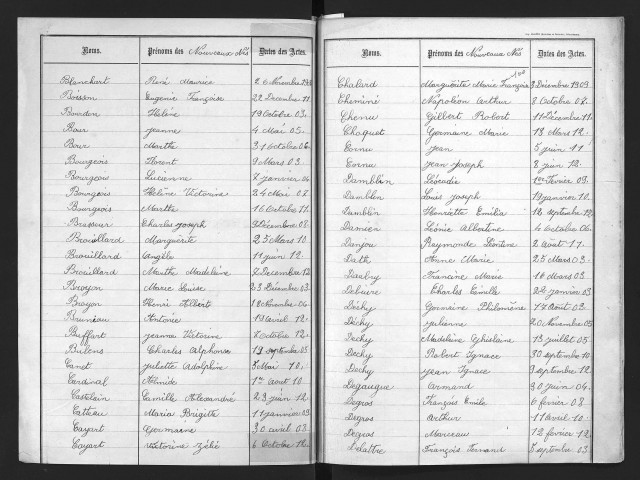 Noms. Prénoms des Nouveaux Nés Dates des Actes.
Blanchart René Maurice 26 Novembre
Boisson Eugénie Françoise 22 Décembre 11.
Bourdon Hélène 19 Octobre 03.
Bour Jeanne 4 Mai 05.
Bour Marthe 31 Octobre 06.
Bourgeois Florent 9 Mars 03.
Bourgeois Lucienne 7 Janvier 04
Bourgeois Hélène Victorine 24 Mai 08.
Bourgeois Marthe 16 Octobre 11.
Brasseur Charles Joseph Décembre 08.
Brouillard Marguerite 23 Mars 10.
Brouillard Angèle 11 juin 12.
Brouillard Marthe Madeleine 7 Décembre 12
Broyon Marie Louise 23 Décembre 03.
Broyon Henri Albert 18 Octobre 04.
Bruneau Antonie 19 avril 12.
Buffart Jeanne Victorine 7 Octobre 12.
Bulens Charles Alphonse 19 septembre 05
Canet Juliette Adolphine Mai 10.
Cardinal Almide 1er Aout 10.
Castelain Camille Alexandre 23 juin 12.
Catteau Maria Brigitte 11 janvier 09.
Cayart Germaine 30 avril 03.
Cayart Victorine Zélie 6 Octobre 12.
Noms. Prénoms des Nouveaux Nés Dates des Actes.
Chalard Marguerite Marie Françoise 8 Décembre 1909
Cheminé Napoléon Arthur 8 Octobre 08.
Chenu Gilbert Robert 11 Décembre 11.
Choquet Germaine Marie 13 Mars 12.
Cornu Jean 5 juin 11
Cornu Jean Joseph 8 juin 12.
Damblin Léocadie 1er Février 03.
Damblin Louis Joseph 19 janvier 10.
Damblin Henriette Emilia 12 septembre 12.
Damien Léonie Albertine 4 octobre 06.
Danjou Raymonde 2 Aout 11.
Dath Anne Marie 25 Mars 03.
Dauby Francine Marie 16 Mars 03.
Charles Camille 24 janvier 03
Déchy Germaine Philomène 17 Aout 03.
Déchy Julienne 20 Novembre 05
Dechy Madeleine Ghislaine 13 juillet 05.
Dechy Robert Ignace 30 septembre 10
Dechy Jean Ignace 9 septembre 12.
Degauque Armand 30 juin 04.
Degros François Emile 6 fevrier 08.
Degros Arthur 11 Avril 10.
Degros Marceau 12 fevrier 12.
Delattre François Fernand septembre 03